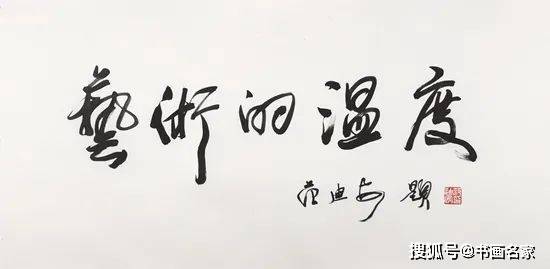 藝術的温度
范迪安 題
搜狐号@书画名家